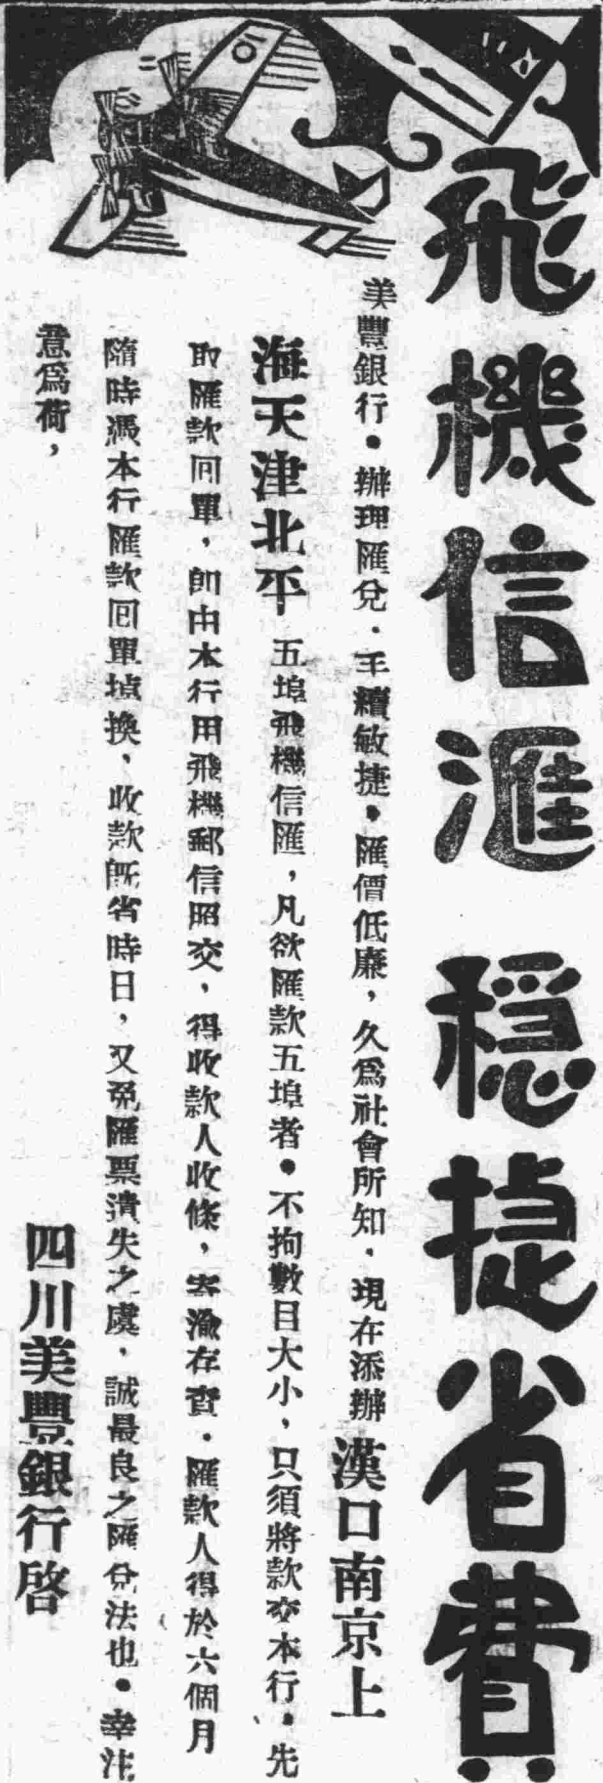 飛機信滙 穩捷省費
美豐銀行．辦理匯兌．手續敏捷，匯價低廉，久爲社會所知．現在添辦漢口南京上
海天津北平五埠飛機信匯，凡欲匯款五埠者．不拘數目大小，只須將款交本行．先
取匯款回單，卽由本行用飛機郵信照交，得收款人收條，寄渝存查．匯款人得於六個月
隨時憑本行匯款回單掉換，收款旣省時日，又免匯票遺失之虞，誠最良之匯兌法也．幸注
意爲荷，
四川美豐銀行啓